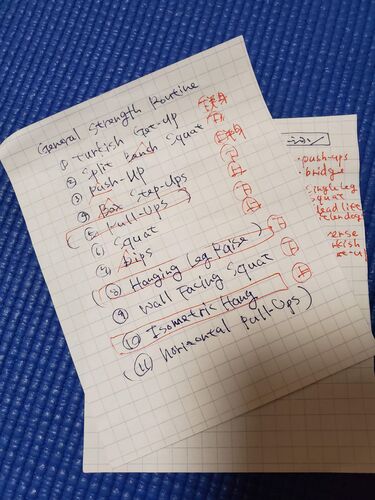 General Strength Routine
① Turkish Get-Up 全身
② Split Bench Squat 下
③ Push-Up 上
④ Box Step-Ups 下
⑤ Pull-Ups 上
⑥ Squat 下
⑦ Dips 上
⑧ Hanging Leg Raise 下
⑨ Wall Facing Squat 下
⑩ Isometric Hang 上
(⑪ Horizontal Pull-Ups)
・push-ups
・bridge
single leg
squat